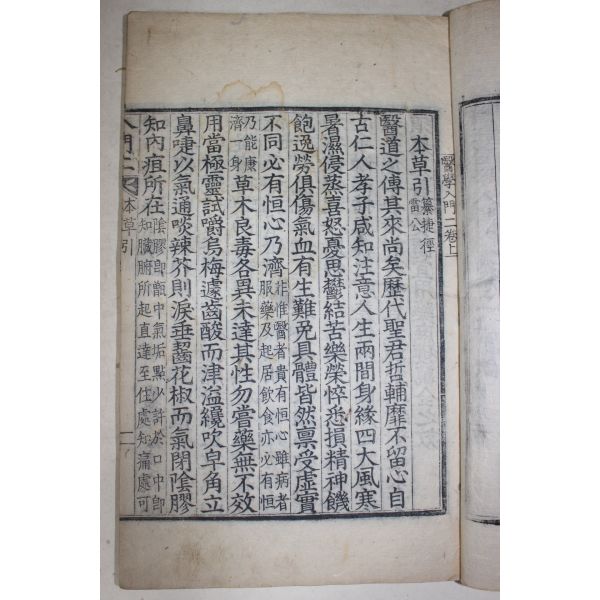 醫學入門二卷上
本草引 纂捷徑
雷公
醫道之傳其來尚矣歷代聖君哲輔靡不留心自
古仁人孝子咸知注意人生兩間身緣四大風寒
暑濕侵蒸喜怒憂思鬱結苦樂榮悴悉損精神饑
飽逸勞俱傷氣血有生難免具體皆然禀受虛實
不同必有恒心乃濟 非惟醫者貴有恒心雖病者
服藥及起居飲食亦必有恒
乃能康
濟一身 草木良毒各異未達其性勿嘗藥無不效
用當極靈試嚼烏梅遽齒酸而津溢纔吹皁角立
鼻嚏以氣通啖辣芥則淚垂齧花椒而氣閉陰膠
知內疽所在 陰膠即甑中氣垢點少許於口中即
知臟腑所起直達至住處知痛處可
入門二 本草引 一